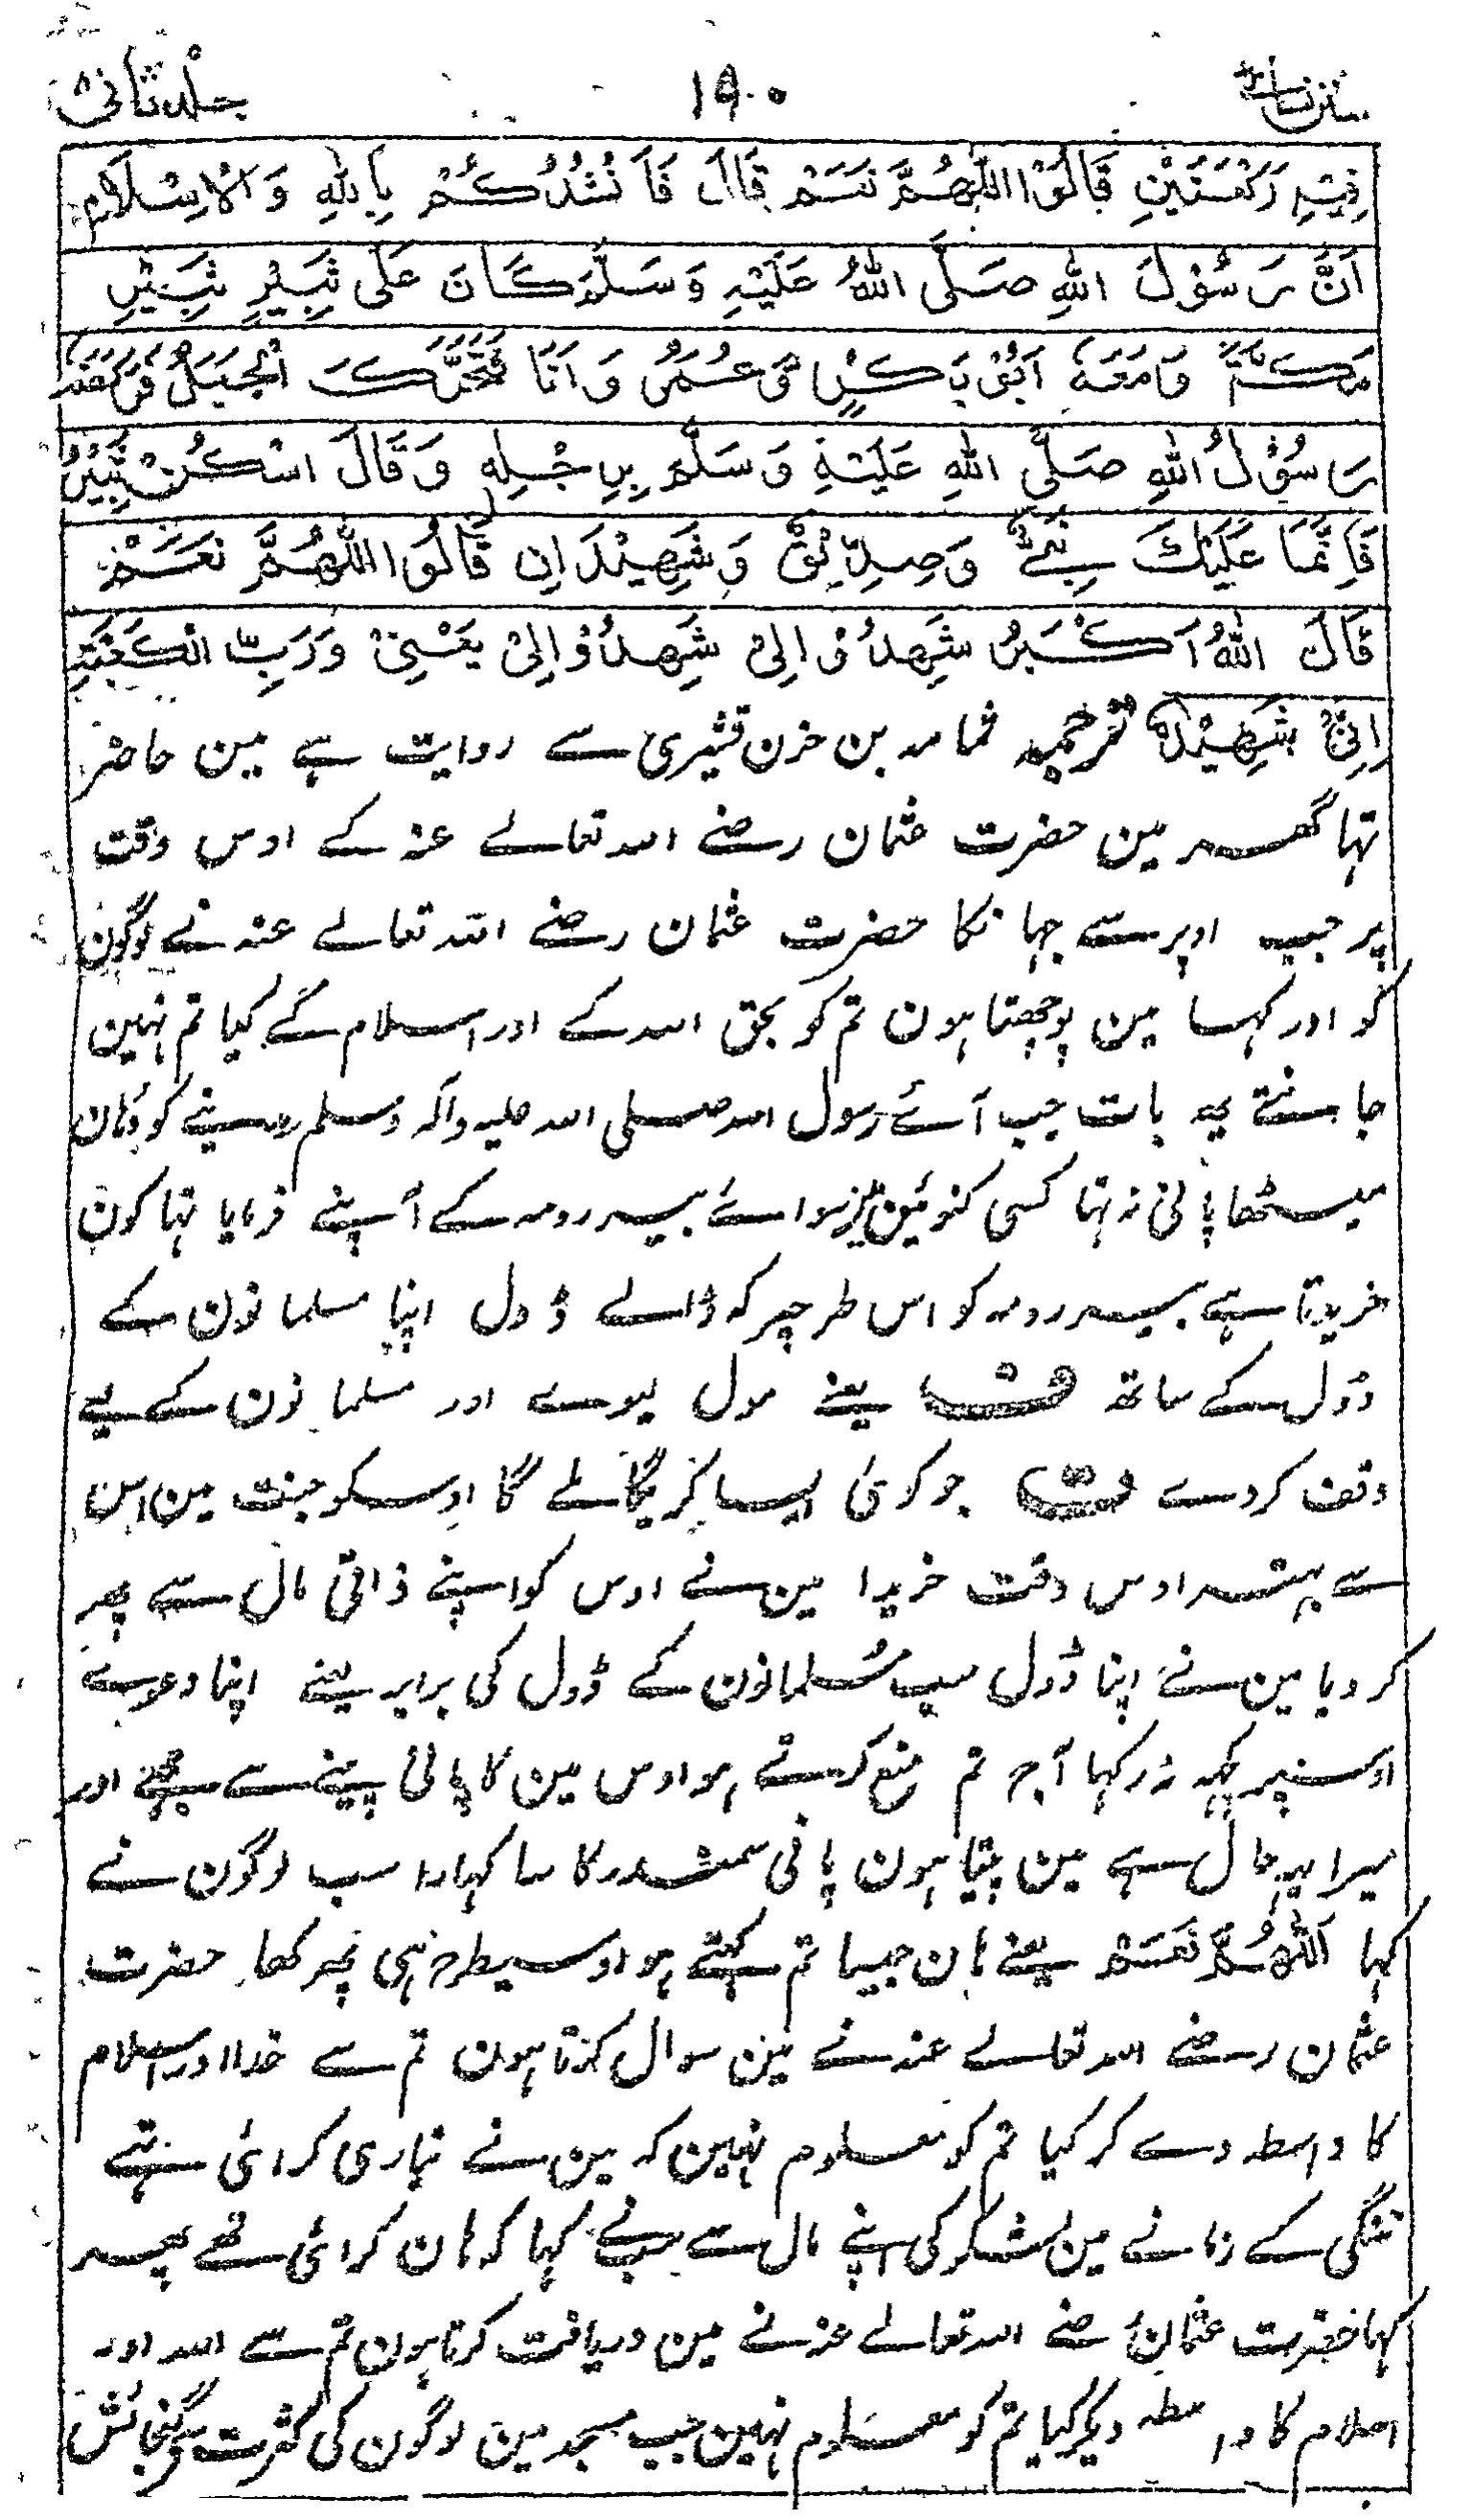 سنن نسائے ۱۹۰ جلد ثانی
فِيْهِ رَكْعَتَيْنِ قَالُوْا اللّٰهُمَّ نَعَمْ قَالَ فَاَنْشُدُكُمْ بِاللّٰهِ وَالْاِسْلَامِ
اَنَّ رَسُوْلَ اللّٰهِ صَلَّى اللّٰهُ عَلَيْهِ وَسَلَّمَ كَانَ عَلٰى ثَبِيْرٍ ثَبِيْرِ
مَكَّةَ وَمَعَهٗ اَبُوْ بَكْرٍ وَّعُمَرُ وَاَنَا فَتَحَرَّكَ الْجَبَلُ فَرَكَضَهٗ
رَسُوْلُ اللّٰهِ صَلَّى اللّٰهِ عَلَيْهِ وَسَلَّمَ بِرِجْلِهٖ وَقَالَ اسْكُنْ ثَبِيْرُ
فَاِنَّمَا عَلَيْكَ نَبِيٌّ وَصِدِّيْقٌ وَشَهِيْدَانِ قَالُوا اللّٰهُمَّ نَعَمْ
قَالَ اللّٰهُ اَكْبَرُ شَهِدُوْا لِيْ شَهِدُوْا لِيْ يَعْنِيْ وَرَبِّ الْكَعْبَةِ
اِنِّيْ شَهِيْدٌ ترجمہ ثمامہ بن حزن قشیری سے روایت ہے مین حاضر
تہا گھر مین حضرت عثمان رضے اللہ تعالے عنہ کے اوس وقت
پر جب اوپر سے جہانکا حضرت عثمان رضے اللہ تعالے عنہ نے لوگون
کو اور کہا مین پوچھتا ہون تم کو بحق اللہ کے اور اسلام کے کیا تم نہین
جانتے یہ بات جب آئے رسول اللہ صلی اللہ علیہ وآلہ وسلم مدینے کو وہان
میٹھا پانی نہ تہا کسی کنوئین مین سوائے بیر رومہ کے آپنے فرمایا تہا کون
خریدتا ہے بیر رومہ کو اس طرحپر کہ ڈالے ڈول اپنا مسلمانون کے
ڈول کے ساتھ ف یعنے مول لیوے اور مسلمانون کے لیے
وقف کردے ف جو کوئی ایسا کریگا ملے گا اوسکو جنت مین اس
سے بہتر اوس وقت خریدا مین نے اوس کو اپنے ذاتی مال سے پھر
کر دیا مین نے اپنا ڈول سب مسلمانون کے ڈول کی برابر یعنے اپنا دعویٰ
اوسپر کچھ نہ رکہا آج تم منع کرتے ہو اوس مین کا پانی پینے سے مجھے اور
میرا یہ حال ہے مین پیتا ہون پانی سمندر کا سا کہارا سب لوگون نے
کہا اَللّٰهُمَّ نَعَمْ یعنے ہان جیسا تم کہتے ہو اوسیطرح ہی پھر کہا حضرت
عثمان رضے اللہ تعالے عنہ نے مین سوال کرتا ہون تم سے خدا اور اسلام
کا واسطہ دے کر کیا تم کو معلوم نہین کہ مین نے تیاری کرائی تہے
تنگی کے زمانے مین لشکر کی اپنے مال سے سب نے کہا کہ ہان کرائی تھے پھر
کہا حضرت عثمان رضے اللہ تعالے عنہ نے مین دریافت کرتا ہون تم سے اللہ اور
اسلام کا واسطہ دیکر کیا تم کو معلوم نہین جب مسجد مین لوگون کی کثرت سے گنجائش